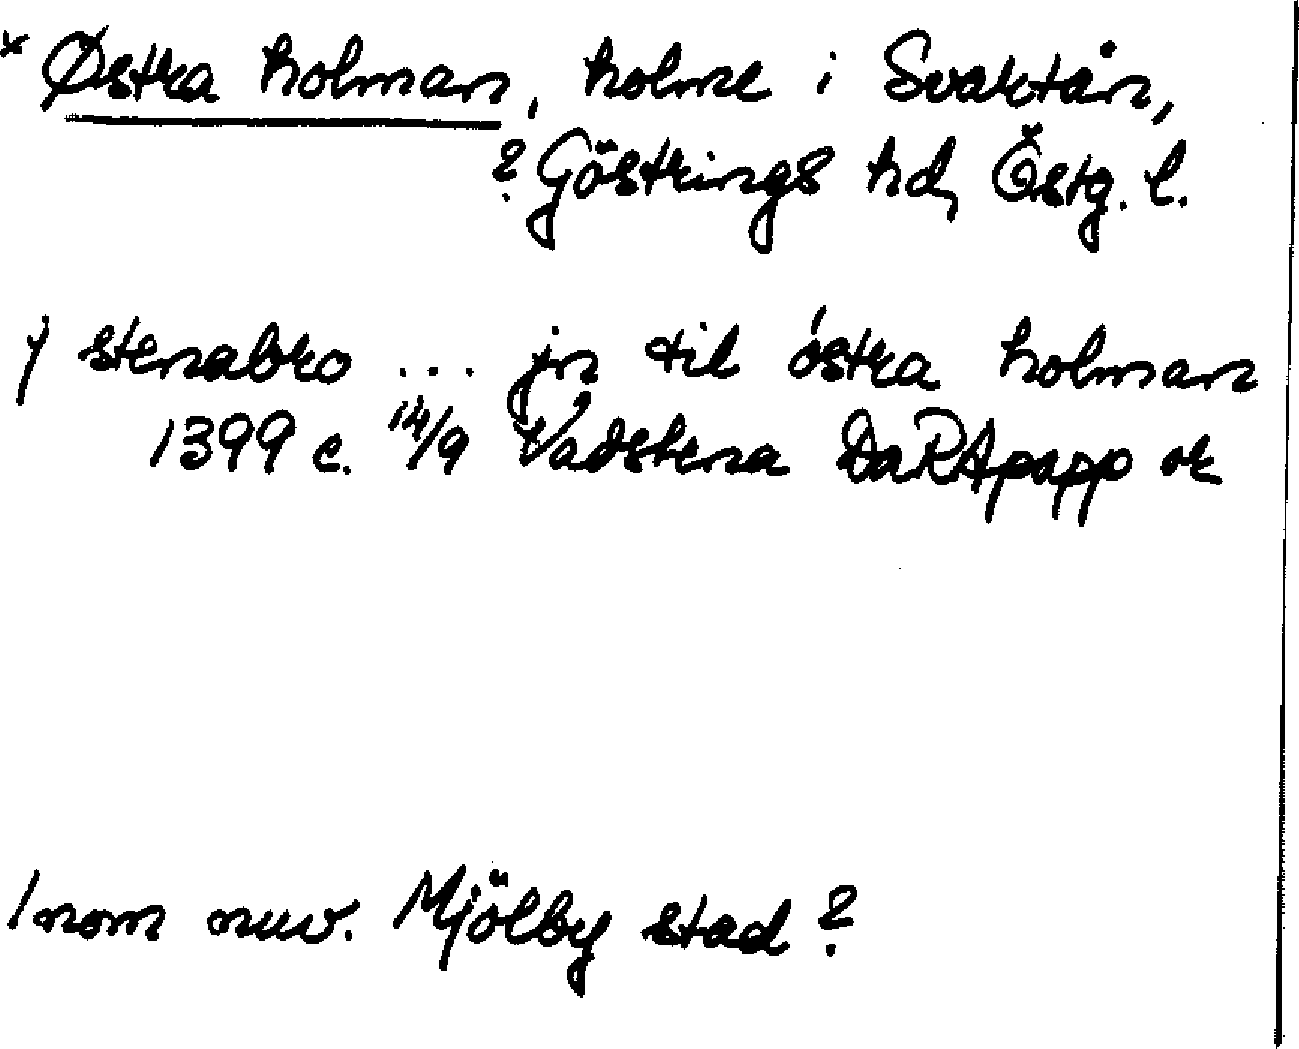 * Østra holman, holme i Svartån,
? Göstrings hd, Östg. l.
j stenabro ... jn til östra holman
1399 c. 14/9 Vadstena DaRApapp or
Inom nuv. Mjölby stad?